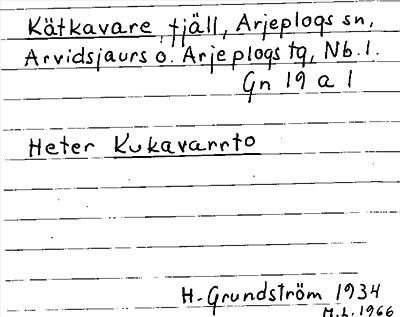 Kätkavare, fjäll, Arjeplogs sn,
Arvidsjaurs o. Arjeplogs tg, Nb. l.
Gn 19 a 1
Heter Kukavarrto
H. Grundström 1934
M.L. 1966